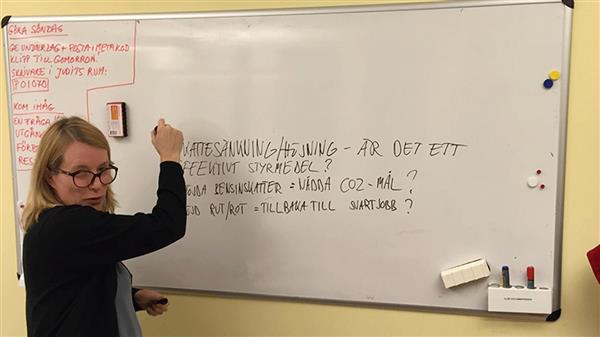 GÖRA SÖNDAG
GE UNDERLAG + POSTA I METAKOD
KLIPP TILL GOMORRON.
SKRIVARE I JUDITS RUM:
P01070
KOM IHÅG
EN FRÅGA
UTGÅNG
ATTESÄNKNING/HÖJNING - ÄR DET ETT
FFEKTIVT STYRMEDEL?
ÖJDA BENSINSKATTER = NÅDDA CO2-MÅL?
RUT/ROT = TILLBAKA TILL SVARTJOBB?